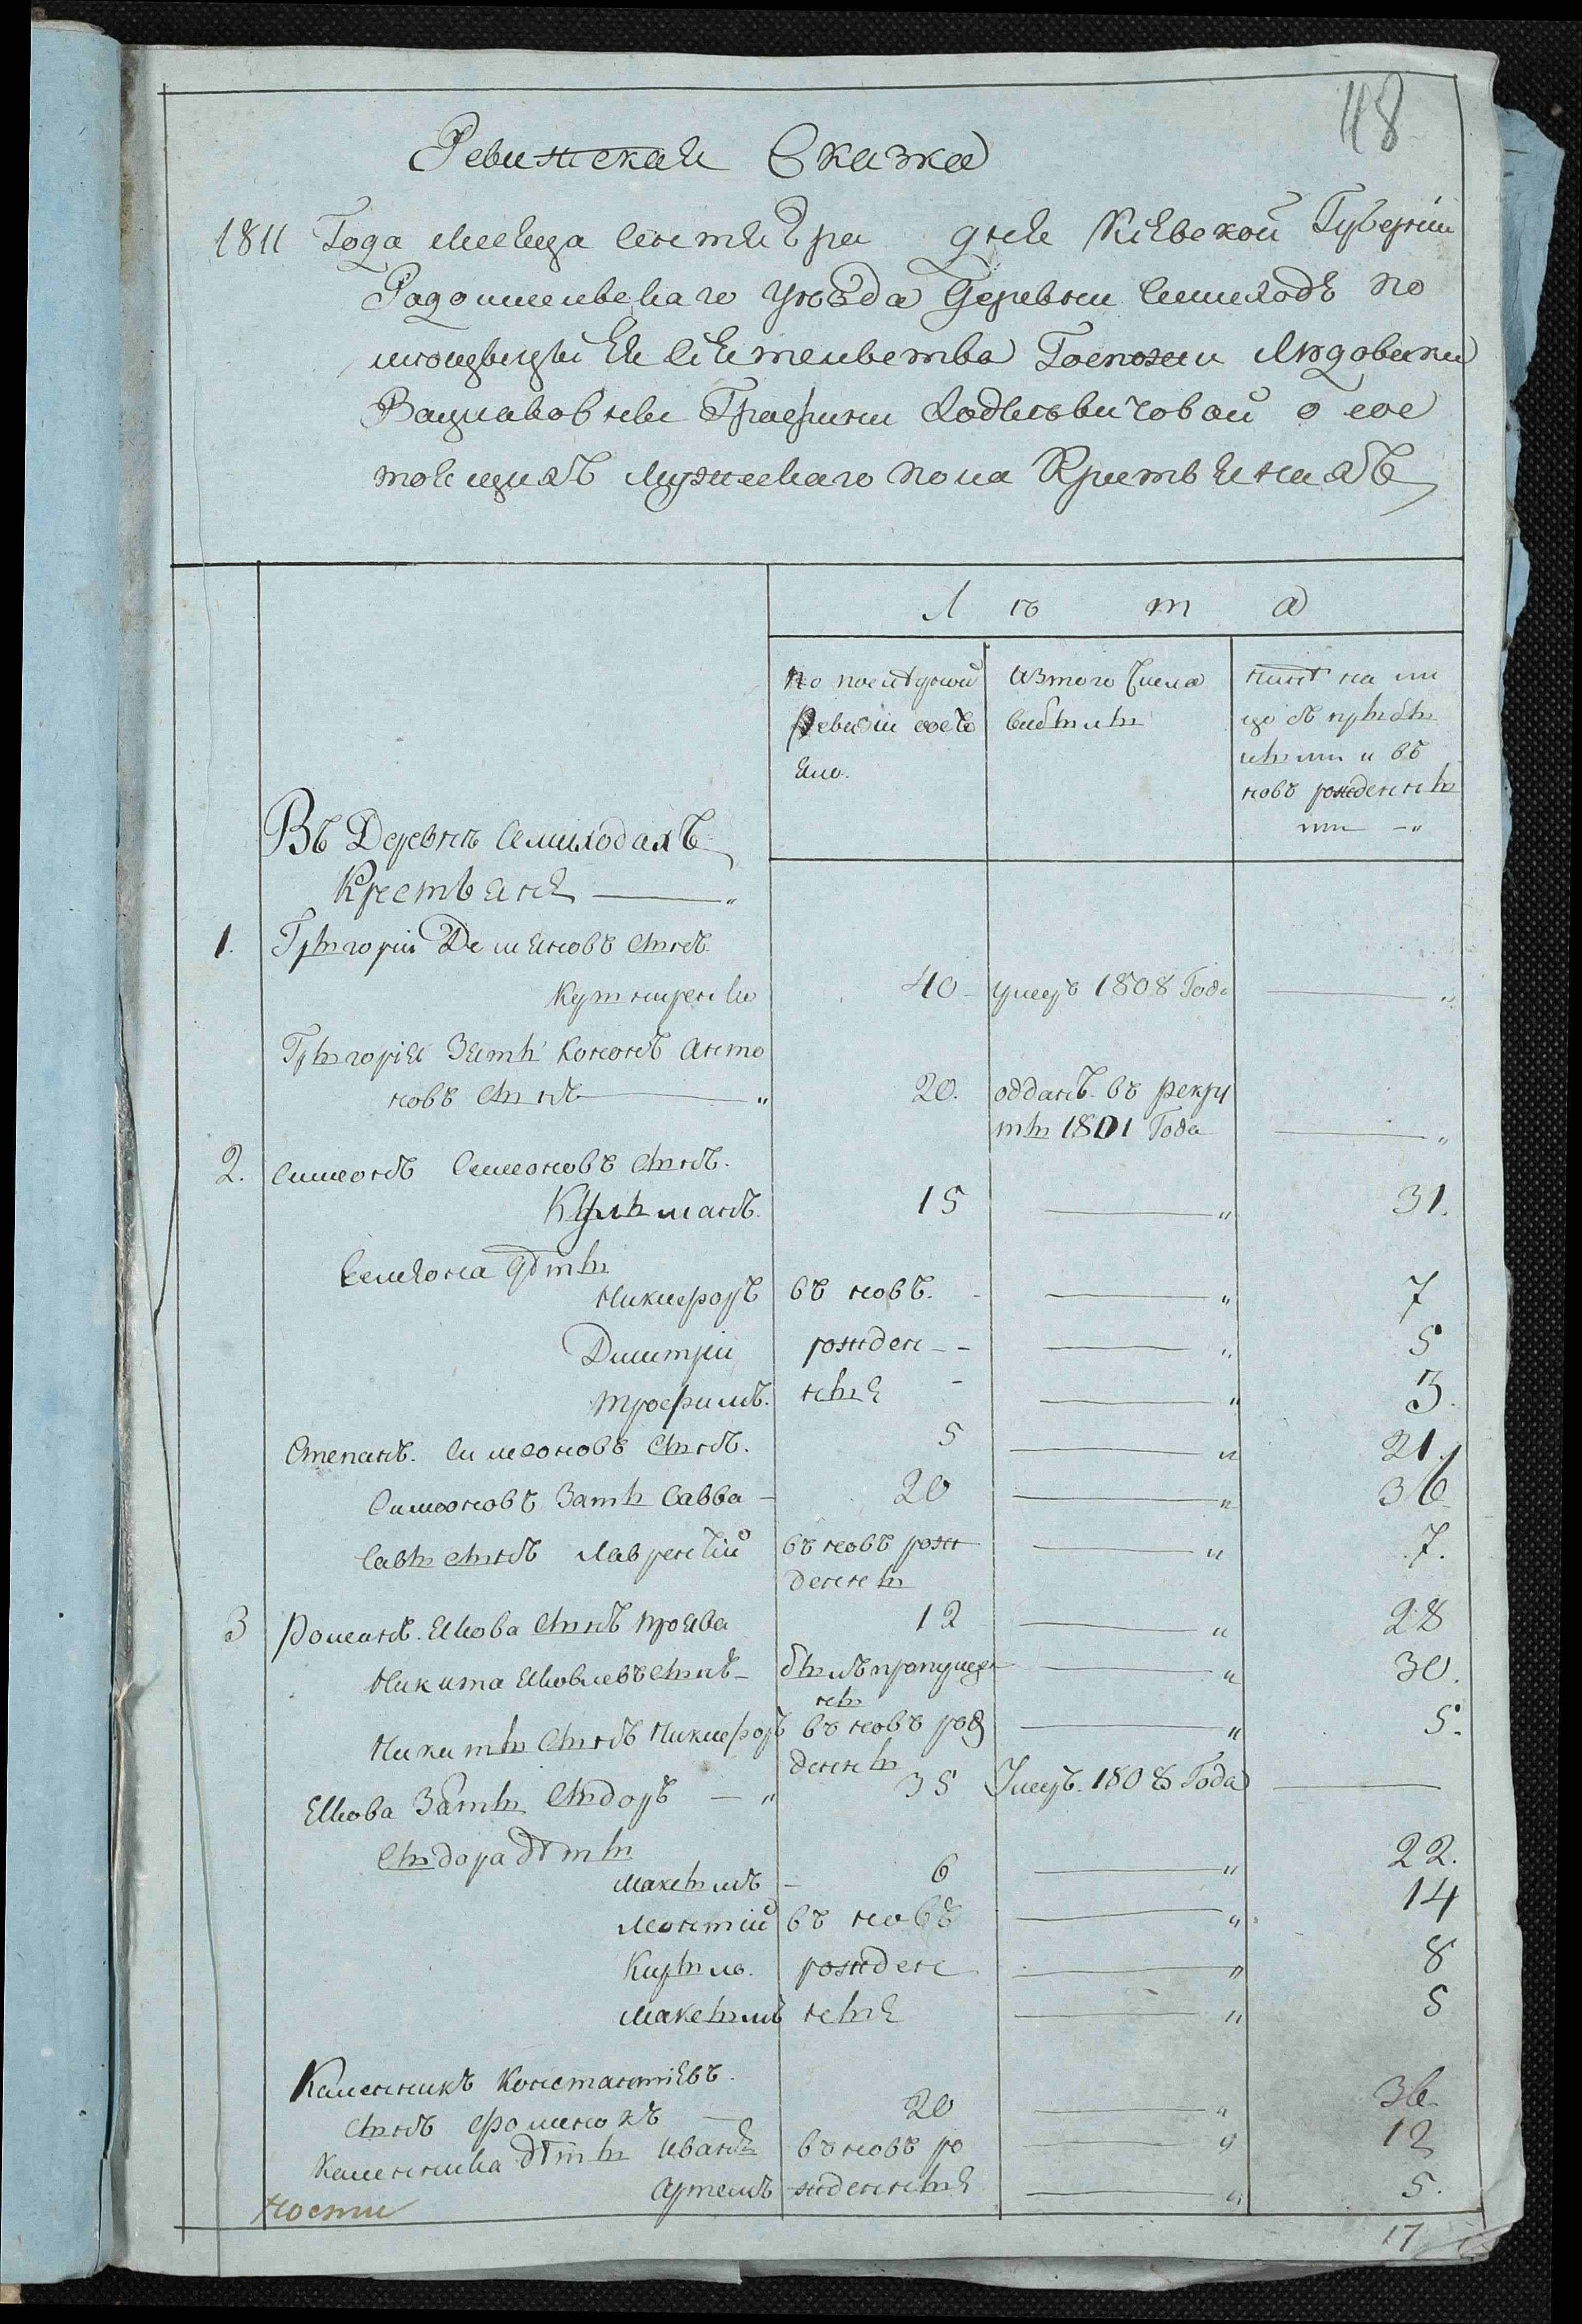 48
Ревижская Сказка
1811 Года месяца сентября дня Кіевской Губерніи
Радомишельскаго уезда Деревни Симаходъ по
мѣщицы Ея Сіятельства Госпожи Людовики
Вацлавовны Графини Ходкевичовой о сос
тоящихъ мужескаго пола Крестьянахъ
Лѣта
По последней
Ревизіи состо
яло.
Изтого числа
выбыли
ныне на ли
цо съ прибы
лыми и въ
новъ рожденны
ми "
Въ Деревнѣ Симаходахъ
Крестьяне — "
1. Григорій Демяновъ сынъ
40 умеръ 1808 Года — "
Григорія Зять Кононъ Анто
новъ сынъ — " 20. отданъ въ рекру
ты 1801 Года — "
2. Симонъ Симоновъ сынъ.
15 — " 31.
Семіона дѣти
Никифоръ въ новъ. — " 7
Димитрій рожден — " 5
Трофимъ. ныя — " 3.
Степанъ. Симеоновъ сынъ. 5 — " 21.
Симоновъ Зять Савва — 20 — " 36
Савы сынъ Лаврентій въ новъ рож — " 7.
денны
3 Романъ. Якова сынъ 12 — " 28
Никита Яковлевъ сынъ — былъ пропущен — " 30.
ны
Никиты сынъ Никифоръ въ новъ рож — " 5.
денны
Якова Зять Сидоръ — " 35 Умеръ. 1808 Года —
Сидора дѣти
Максымъ — 6 — " 22.
Леонтій въ новъ — " 14
Кирыло. рожден — " 8
Максымъ ныя — " 5
Каленникъ Константіевъ.
сынъ Фоменокъ — 20 — " 36
Каленника дѣти Иванъ въ новъ ро — " 12
Артемъ жденныя — " 5.
17